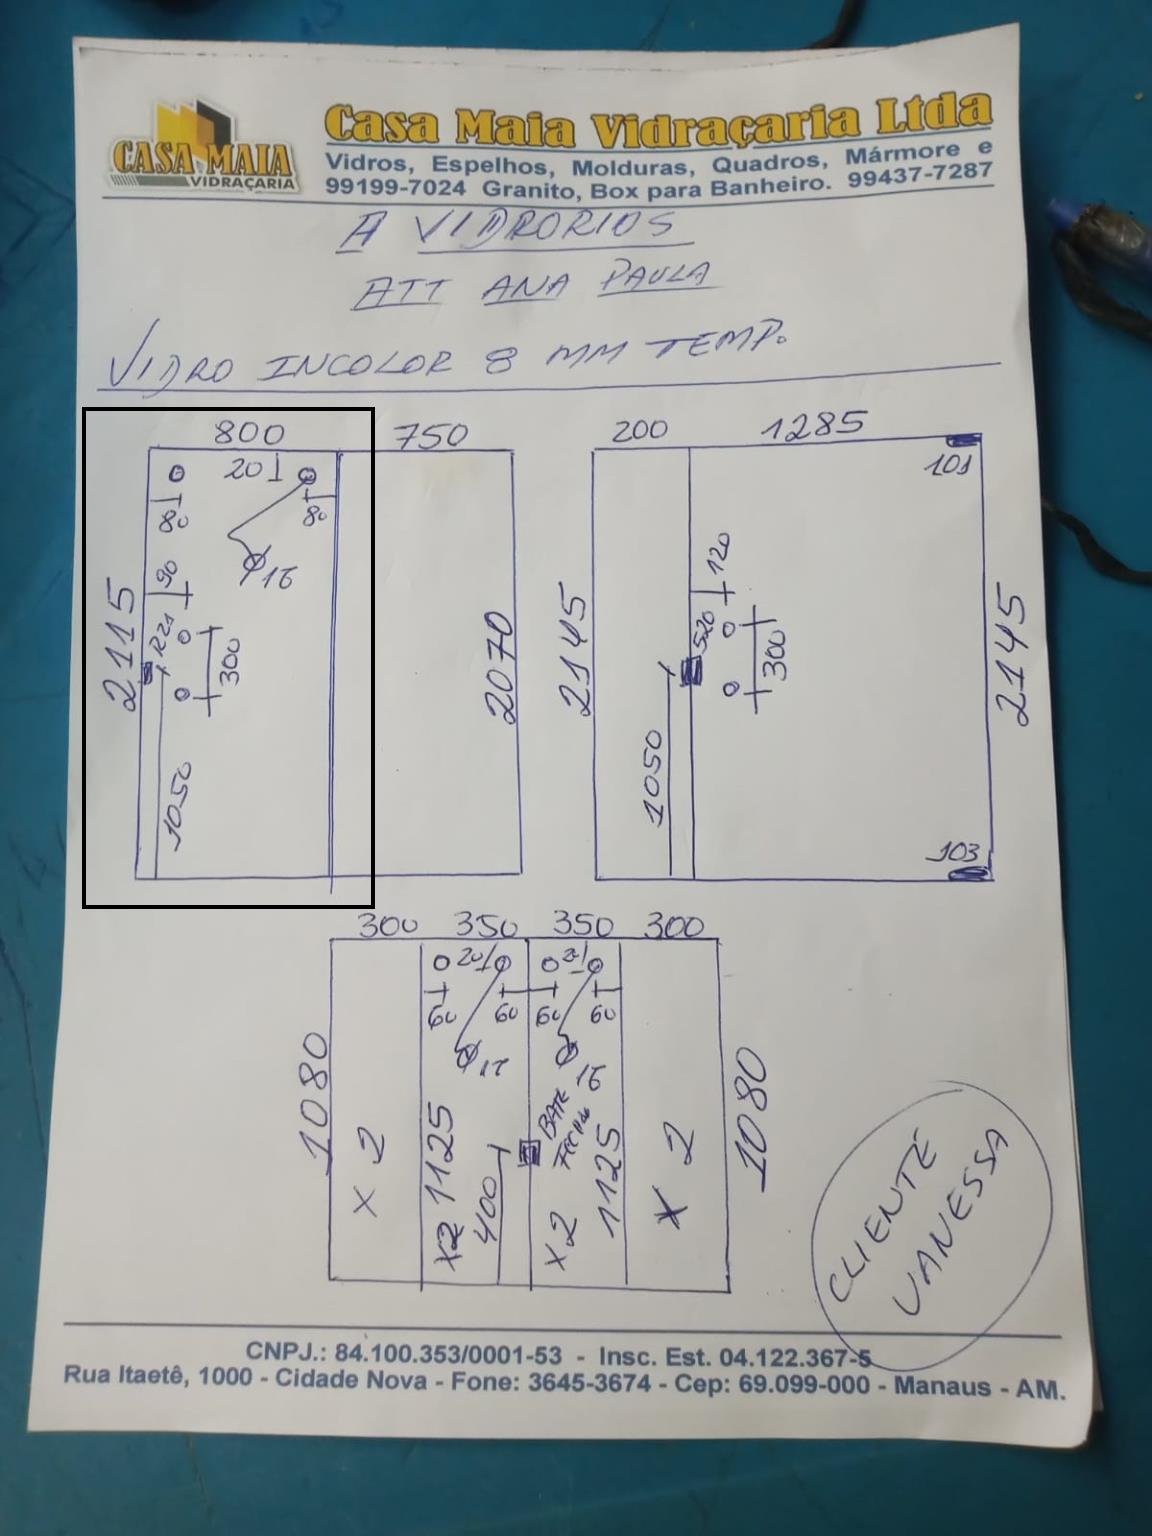 CASA MAIA
VIDRAÇARIA
Casa Maia Vidraçaria Ltda
Vidros, Espelhos, Molduras, Quadros, Mármore e
99199-7024 Granito, Box para Banheiro. 99437-7287
A VIDRORIOS
ATT ANA PAULA
VIDRO INCOLOR 8 MM TEMP.
800
750
20
80
80
16
90
R21
300
2115
1050
2070
200
1285
101
120
520
300
2145
1050
2145
103
300 350 350 300
20
60 60 60 60
16
1080
X 2
X2 1125
400
BATE
16
X 2
1125
X 2
1080
CLIENTE
VANESSA
CNPJ.: 84.100.353/0001-53 - Insc. Est. 04.122.367-5
Rua Itaetê, 1000 - Cidade Nova - Fone: 3645-3674 - Cep: 69.099-000 - Manaus - AM.